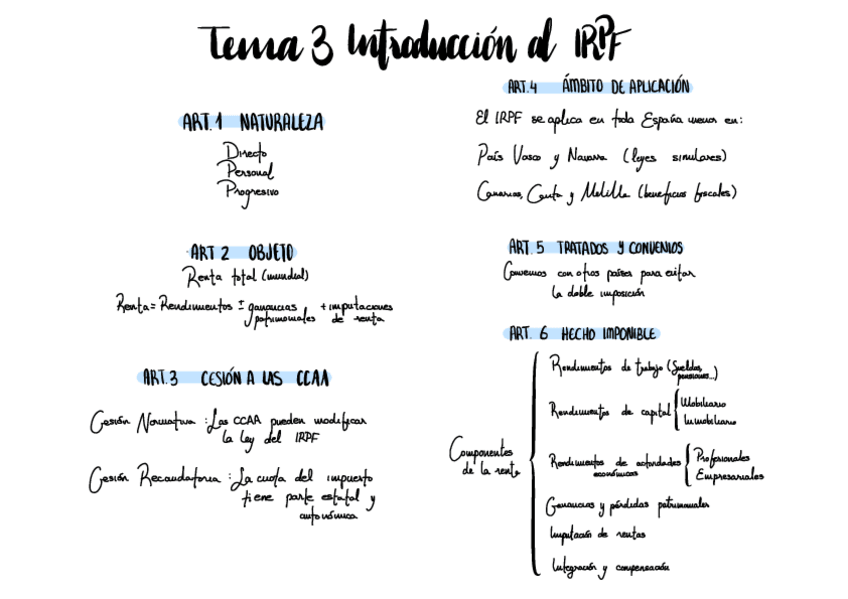 Tema 3 Introducción al IRPF
ART.1 NATURALEZA
Directo
Personal
Progresivo
ART 2 OBJETO
Renta total (mundial)
Renta = Rendimientos ± ganancias patrimoniales + imputaciones de renta
ART.3 CESIÓN A LAS CCAA
Cesión Normativa : Las CCAA pueden modificar
la ley del IRPF
Cesión Recaudatoria : La cuota del impuesto
tiene parte estatal y
autonómica
ART.4 ÁMBITO DE APLICACIÓN
El IRPF se aplica en toda España menos en:
País Vasco y Navarra (leyes similares)
Canarias, Ceuta y Melilla (beneficios fiscales)
ART. 5 TRATADOS Y CONVENIOS
Convenios con otros países para evitar
la doble imposición
ART. 6 HECHO IMPONIBLE
Componentes
de la renta
Rendimientos de trabajo (Sueldos,
pensiones...)
Rendimientos de capital
Mobiliario
Inmobiliario
Rendimientos de actividades
económicas
Profesionales
Empresariales
Ganancias y pérdidas patrimoniales
Imputación de rentas
Integración y compensación